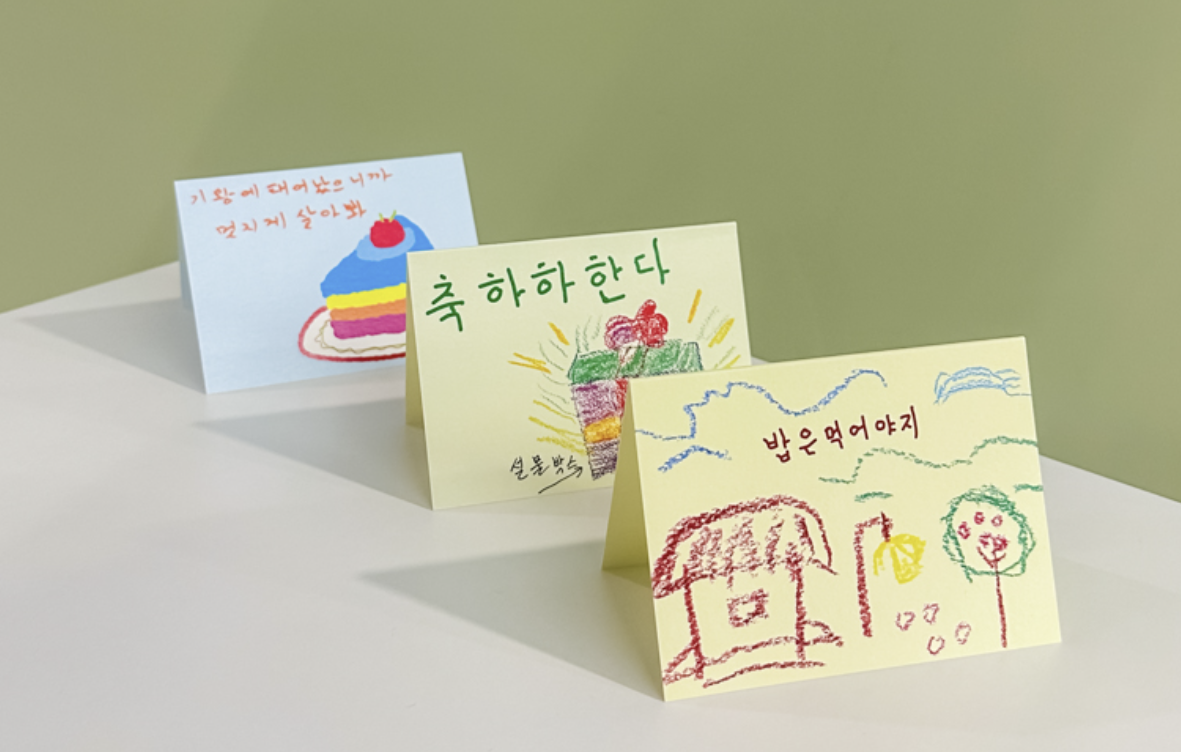 기왕에 태어났으니까
멋지게 살아봐
축하하한다
선물박스
밥은먹어야지